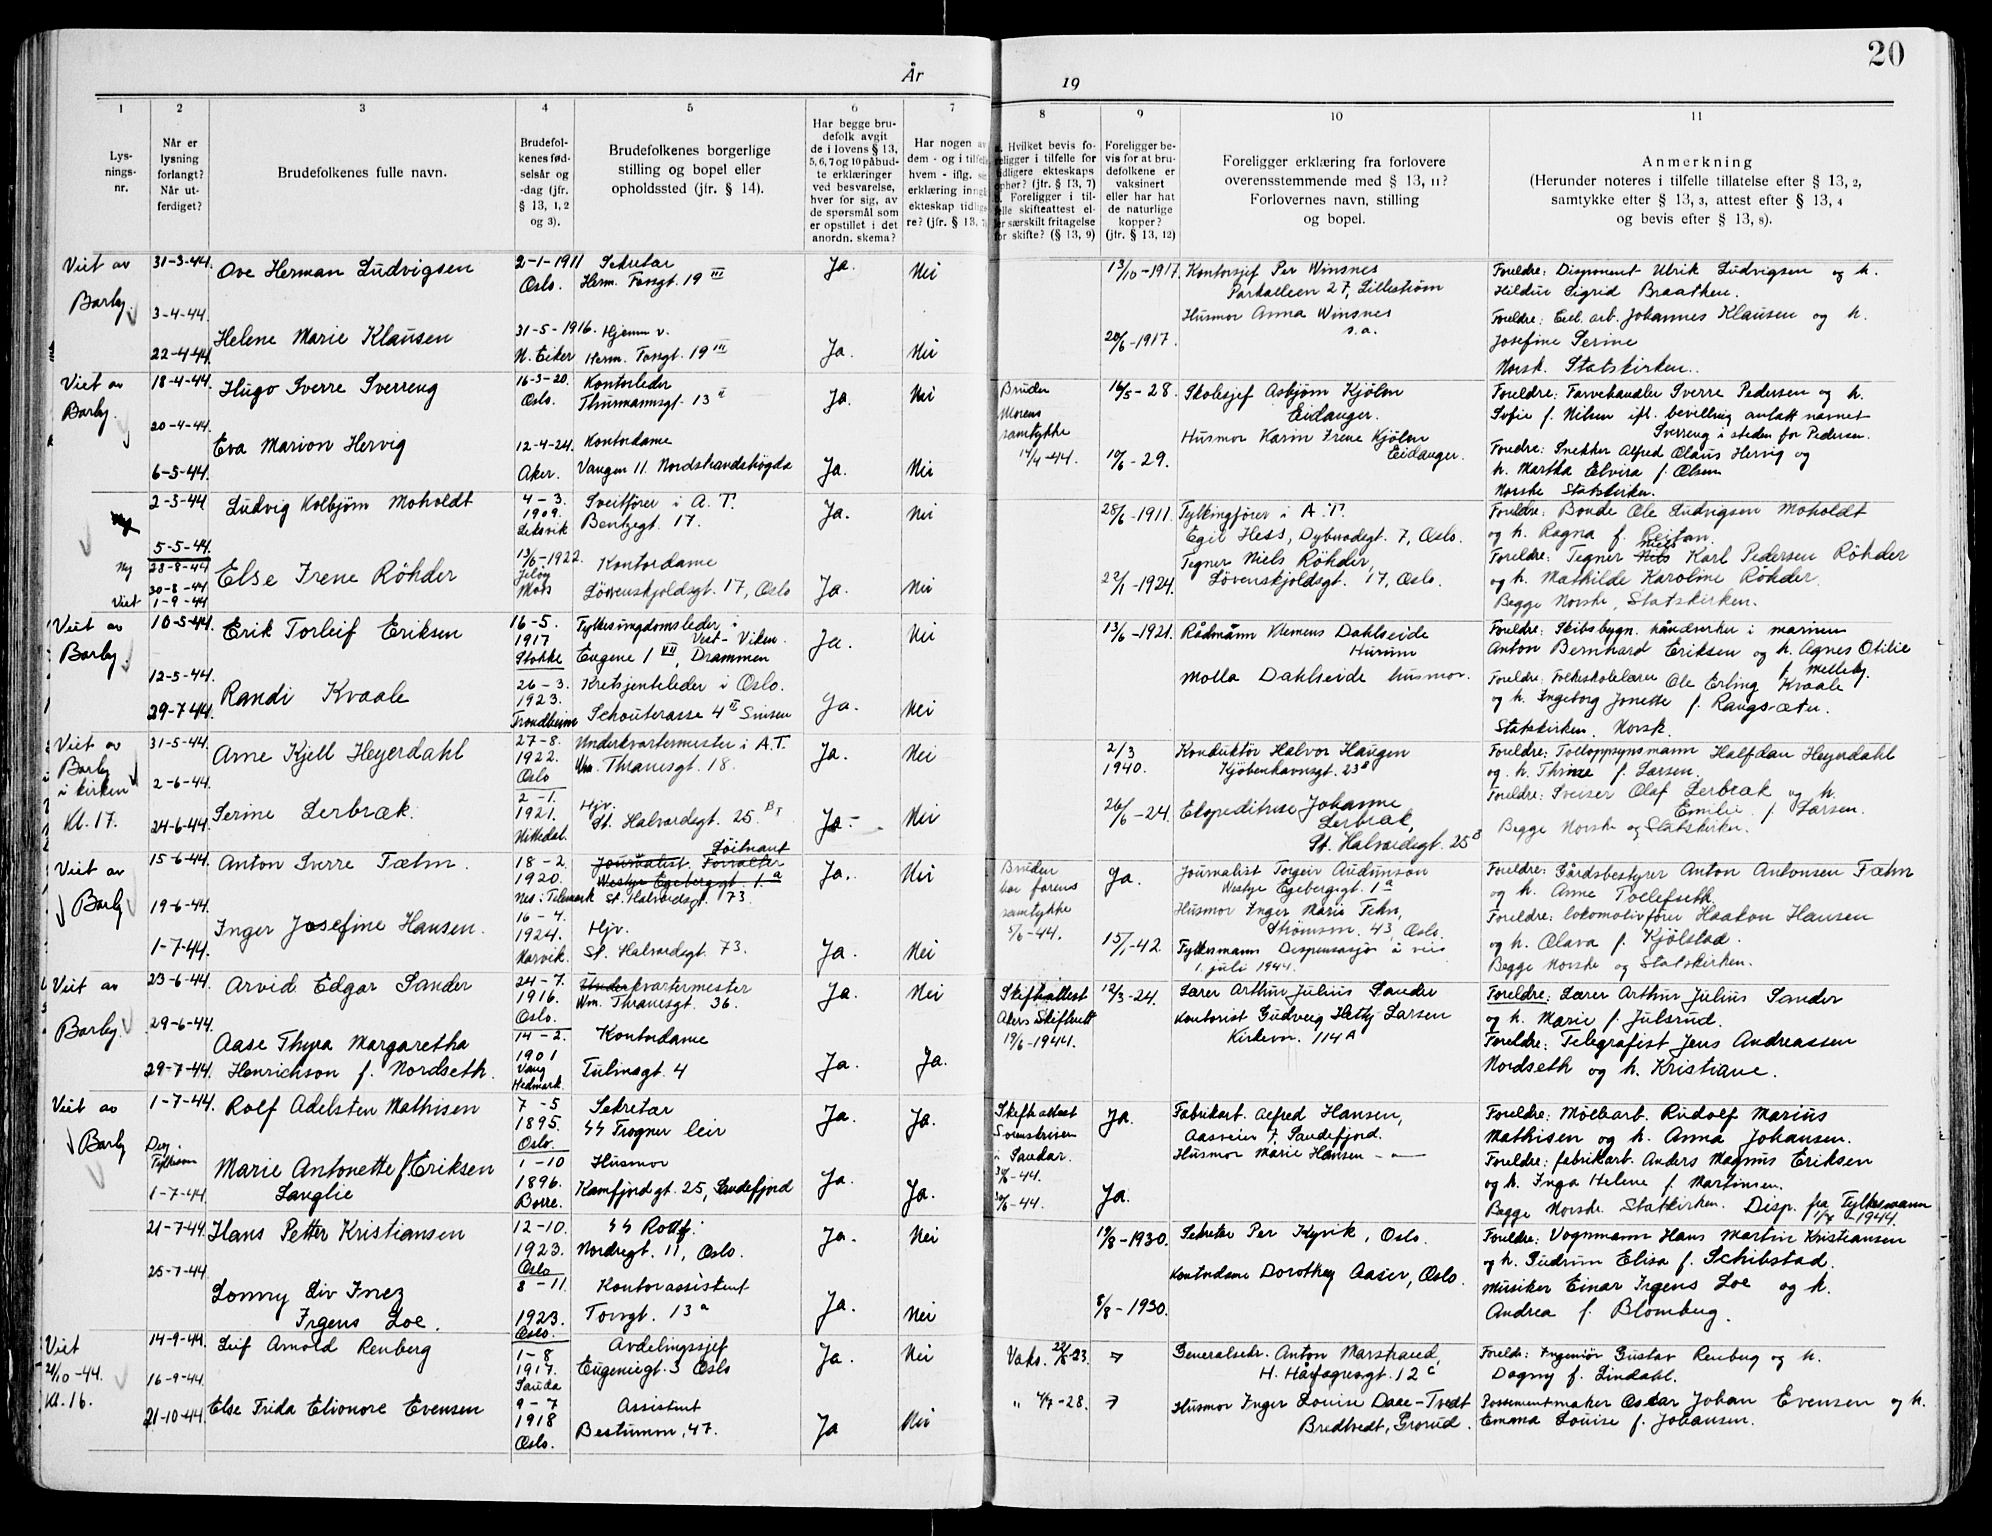 20
År
19
1
2
3
4
5
6
7
8
9
10
11
Lys-
nings-
nr.
Når er
lysning
forlangt?
Når ut-
ferdiget?
Brudefolkenes fulle navn.
Brudefol-
kenes fød-
selsår og
-dag (jfr.
§ 13, 1, 2
og 3).
Brudefolkenes borgerlige
stilling og bopel eller
opholdssted (jfr. § 14).
Har begge bru-
defolk avgit
de i lovens § 13,
5, 6, 7 og 10 påbud-
te erklæringer
ved besvarelse,
hver for sig, av
de spørsmål som
er opstillet i det
anordn. skema?
Har nogen av
dem - og i tilfelle
hvem - iflg. se
erklæring inng
ekteskap tidlig
re? (jfr. § 13,
Hvilket bevis fo-
religger i tilfelle for
tidligere ekteskaps
ophør? (jfr. § 13, 7)
Foreligger i til-
felle skifteattest el-
ler særskilt fritagelse
for skifte? (§ 13, 9)
Foreligger be-
vis for at bru-
defolkene er
vaksinert
eller har hat
de naturlige
kopper?
(jfr. § 13, 12)
Foreligger erklæring fra forlovere
overensstemmende med § 13, 11?
Forlovernes navn, stilling
og bopel.
Anmerkning
(Herunder noteres i tilfelle tillatelse efter § 13, 2,
samtykke efter § 13, 3, attest efter § 13, 4
og bevis efter § 13, 8).
Viet av
Barby
31-3-44.
3-4-44.
22-4-44.
Ove Herman Ludvigsen
Helene Marie Klausen
2-1-1911
Oslo.
31-5-1916.
N. Eiker
Sekretær
Herm. Fossgt. 19 III
Hjemm v.
Herm. Fossgt. 19 III
Ja.
Nei
Ja.
Nei
13/10-1917.
20/6-1917.
Kontorsjef Per Winsnes
Parkalleen 27, Lillestrøm
Husmor Anna Winsnes
s.a.
Foreldre: Disponent Ulrik Ludvigsen og h.
Hildur Sigrid Braathen.
Foreldre: arb. Johannes Klausen og h.
Josefine Serine
Norsk. Statskirken.
Viet av
Barby.
18-4-44.
20-4-44.
6-5-44.
Hugo Sverre Sverreng
Eva Marion Hervig
16-3-20.
Oslo.
12-4-24.
Aker.
Kontorleder
Thurmannsgt. 13 II
Kontordame
Vangen 11. Nordstrandshøgda
Ja.
Nei
Ja.
Nei
Bruden
Morens
samtykke
14/4-44.
16/5-28.
10/6-29.
Skolesjef Asbjørn Kjølen
Eidanger.
Husmor Karin Irene Kjølen
Eidanger.
Foreldre: Farvehandler Sverre Pedersen og h.
Sofie f. Nilsen ifl. bevilling antatt navnet
Sverreng i steden for Pedersen.
Foreldre: Snekker Alfred Olaus Hervig og
h. Martha Elvira f. Olsen
Norske Statskirken.
Ny
Viet
2-3-44
5-5-44.
28-8-44
30-8-44
1-9-44
Ludvig Kolbjørn Moholdt
Else Irene Röhder
4-3.
1909.
Leksvik
13/6-1922.
Jeløy
Moss
Sveitfører i A.T.
Bentzegt. 17.
Kontordame
Løvenskjoldsgt. 17, Oslo
Ja.
Nei
Ja.
Nei
28/6-1911
22/1-1924.
Fylkingfører i A.T.
Egil Hess, Dybwadsgt. 7, Oslo.
Tegner Niels Röhder,
Løvenskjoldsgt. 17, Oslo.
Foreldre: Bonde Ole Ludvigsen Moholdt
og h. Ragna f. Reitan.
Foreldre: Tegner Nils Niels Karl Pedersen Röhder
og h. Mathilde Karoline Röhder.
Begge Norske, Statskirken.
Viet av
Barby
10-5-44.
12-5-44.
29-7-44.
Erik Torleif Eriksen
Randi Kvaale
16-5.
1917
Stokke
26-3.
1923.
Trondheim
Fylkesungdomsleder i
Vest-Viken.
Eugene 1 VII, Drammen
Kretsjenteleder i Oslo.
Schouterasse 4 II Sinsen
Ja.
Nei
Ja.
Nei
13/6-1921.
Rådmann Klemens Dahlseide
Hurum
Molla Dahlseide husmor.
Foreldre: Skibsbygn. håndverker i marinen
Anton Bernhard Eriksen og h. Agnes Otilie
f. Melleby.
Foreldre: Folkeskolelærer Ole Erling Kvaale
og h. Ingeborg Jonette f. Rangsæter.
Statskirken. Norsk.
Viet av
Barby
i kirken
Kl. 17.
31-5-44.
2-6-44.
24-6-44.
Arne Kjell Heyerdahl
Serine Lerbræk.
27-8.
1922.
Oslo
2-1.
1921.
Nittedal.
Underkvartermester i A.T.
Wm. Thranesgt. 18.
Hjv.
St. Halvardsgt. 25 B I
Ja.
Nei
Ja.-
Nei
2/3
1940.
26/6-24.
Konduktør Halvor Haugen
Kjøbenhavnsgt. 23 B
Ekspeditrise Johanne
Lerbræk,
St. Halvardsgt. 25 B
Foreldre: Tolloppsynsmann Halfdan Heyerdahl
og h. Thrine f. Larsen.
Foreldre: Sveiser Olaf Lerbræk og h.
Emilie f. Larsen.
Begge Norske og Statskirken.
Viet av
Barby
15-6-44.
19-6-44.
1-7-44.
Anton Sverre Fæhn.
Inger Josefine Hansen.
18-2
1920.
Nes i Telemark
16-4.
1924.
Narvik.
Löitnant
Journalist. Forvalter
Westye Egebergsgt. 1 a
St. Halvardsgt. 73.
Hjv.
St. Halvardsgt. 73.
Ja.
Nei
Ja.
Nei
Bruden
har farens
samtykke
5/6-44.
Ja.
15/1-42.
Journalist Torgeir Audunson
Westye Egebergsgt. 1 a
Husmor Inger Marie Fehn,
Strømsvn. 43, Oslo.
Fylkesmanns Dispensasjon å vies
1. juli 1944.
Foreldre: Gårdsbestyrer Anton Antonsen Fæhn
og h. Anne Tollefseth
Foreldre: lokomotivfører Haakon Hansen
og h. Olava f. Kjölstad.
Begge Norske og Statskirken.
Viet av
Barby.
23-6-44.
29-6-44.
29-7-44.
Arvid Edgar Sander
Aase Thyra Margaretha
Henrichson f. Nordseth.
24-7.
1916.
Oslo.
14-2.
1901
Vang
Hedmark.
Underkvartermester
Wm. Thranesgt. 36.
Kontordame
Tulinsgt. 4
Ja.
Nei
Ja.
Ja.
Skifteattest
Akers Skifterett
19/6-1944.
12/3-24.
Lærer Arthur Julius Sander
Kontorist Gudveig Hetty Larsen
Kirkevn. 114 A
Foreldre: Lærer Arthur Julius Sander
og h. Marie f. Julsrud.
Foreldre: Telegrafist Jens Andreassen
Nordseth og h. Kristiane.
Viet av
Barby
1-7-44.
Disp.
Fylkesm
1-7-44.
Rolf Adelsten Mathisen
Marie Antonette f. Eriksen
Langlie
7-5
1895.
Oslo.
1-10
1896.
Borre.
Sekretær
SS Trogner leir
Husmor
Kamfjordgt. 25, Sandefjord
Ja.
Ja.
Ja.
Ja.
Skifteattest
Sorenskriveren
i Sandar.
30/6-44.
30/6-44.
Ja.
Ja.
Fabrikarb. Alfred Hansen,
Aasveien 7, Sandefjord.
Husmor Marie Hansen - " -
Foreldre: Møllearb. Rudolf Marius
Mathisen og h. Anna Johansen.
Foreldre: fabrikarb. Anders Magnus Eriksen
og h. Inga Helene f. Martinsen.
Begge Norske. Statskirken. Disp. fra Fylkesmann
1/7-1944.
21-7-44
25-7-44.
Hans Petter Kristiansen
Lonny Liv Inez
Irgens Loe.
12-10.
1923.
Oslo
8-11
1923.
Oslo.
SS Rottf:
Nordregt. 11, Oslo.
Kontorassistent
Torvgt. 13 a
Ja.
Nei
Ja.
Nei
19/8-1930.
8/8-1930.
Sekretær Per Kyvik, Oslo.
Kontordame Dorothey Aaser, Oslo.
Foreldre: Vognmann Hans Martin Kristiansen
og h. Gudrun Elisa f. Schibstad.
Musiker Einar Irgens Loe og h.
Andrea f. Blomberg.
Viet
21/10-44.
Kl. 16.
14-9-44.
16-9-44.
21-10-44.
Leif Arnold Renberg
Else Frida Elionore Evensen
1-8
1917.
Sauda
9-7
1918
Oslo.
Avdelingssjef
Eugeniesgt. 3 Oslo
Assistent
Bestumvn. 47.
Ja.
Nei
Ja
Nei
Vaks. 22/6-23.
" 4/7-28.
Generalsekr. Anton Marstrand,
H. Hårfagresgt. 12 c
Husmor Inger Louise Daae-Tvedt
Bredtvedt, Grorud.
Foreldr: Ingeniør Gustav Renberg og h.
Dagny f. Lindahl.
Possementmaker Oscar Johan Evensen og h.
Emma Louise f. Johansen.